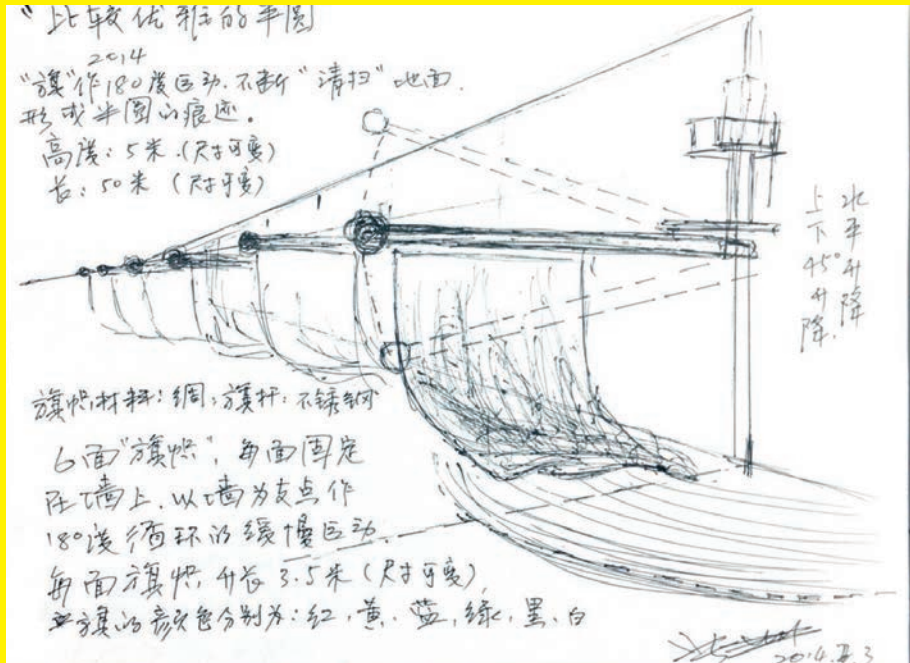 “比较优雅的半圆
2014
“旗”作180度运动.不断“清扫”地面.
形成半圆的痕迹。
高度:5米.(尺寸可变)
长:50米 (尺寸可变)
水平升降
上下45°升降.
旗帜材料:绸;旗杆:不锈钢
6面“旗帜”,每面固定
在墙上.以墙为支点作
180度循环的缓慢运动.
每面旗帜,升长3.5米(尺寸可变)
旗的颜色分别为:红,黄,蓝,绿,黑,白